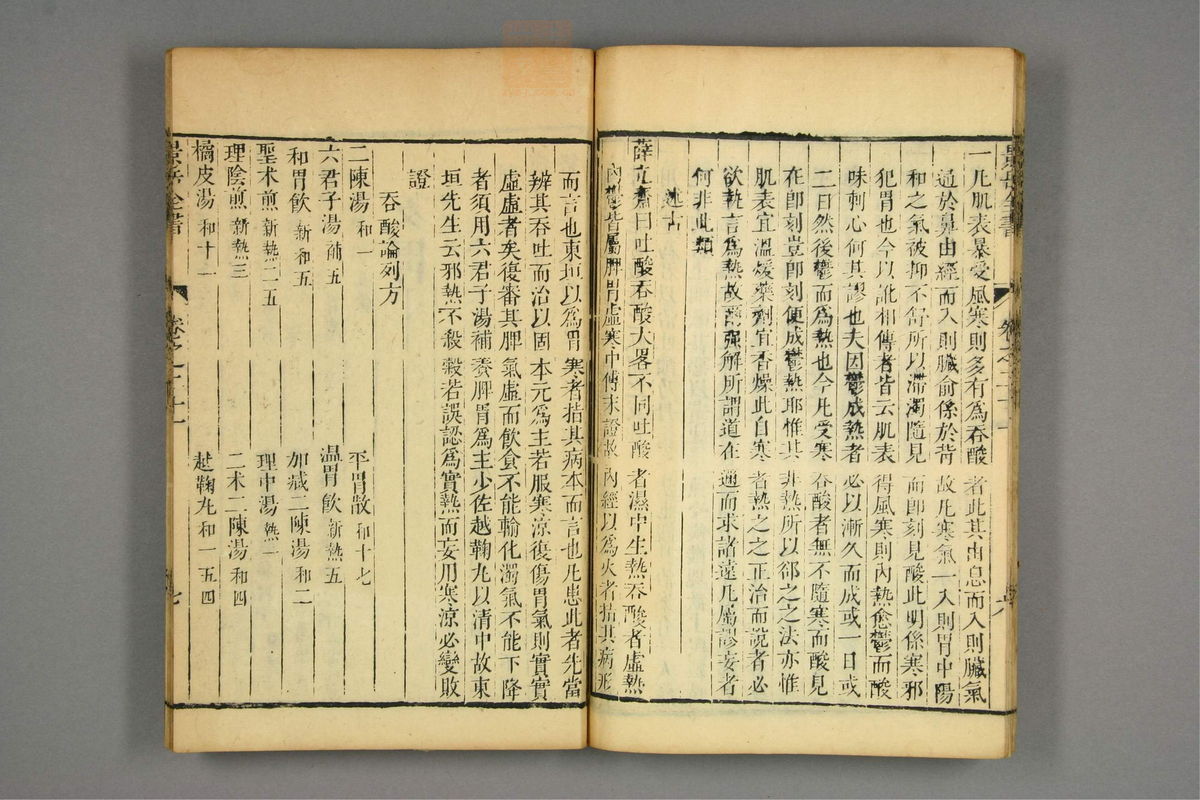 一凡肌表暴受風寒則多有為吞酸者此其由息而入則臟氣
通於鼻由經而入則臟俞係於背故凡寒氣一入則胃中陽
和之氣被抑不舒所以滯濁隨見而卽刻見酸此明係寒邪
犯胃也今以訛相傳者皆云肌表得風寒則內熱愈鬱而酸
味刺心何其謬也夫因鬱成熱者必以漸久而成或一日或
二日然後鬱而為熱也今凡受寒吞酸者無不隨寒而酸見
在卽刻豈卽刻便成鬱熱耶惟其非熱所以郤之之法亦惟
肌表宜溫煖藥劑宜香燥此自寒者熱之之正治而說者必
欲執言為熱故為強解所謂道在邇而求諸遠凡屬謬妄者
何非此類
述古
薛立齋曰吐酸吞酸大畧不同吐酸者濕中生熱吞酸者虛熱
內鬱皆屬脾胃虛寒中傳末證故內經以為火者指其病形
而言也東垣以為胃寒者指其病本而言也凡患此者先當
辨其吞吐而治以固本元為主若服寒涼復傷胃氣則實實
虛虛者矣復審其脾氣虛而飲食不能輸化濁氣不能下降
者須用六君子湯補養脾胃為主少佐越鞠丸以清中故東
垣先生云邪熱不殺穀若誤認為實熱而妄用寒涼必變敗
證
吞酸論列方
二陳湯 和一 平胃散 和十七
六君子湯 補五 温胃飲 新熱五
和胃飲 新和五 加減二陳湯 和二
聖术煎 新熱二五 理中湯 熱一
理陰煎 新熱三 二术二陳湯 和四
橘皮湯 和十一 越鞠丸 和一五四
景岳全書 卷之二十一 七